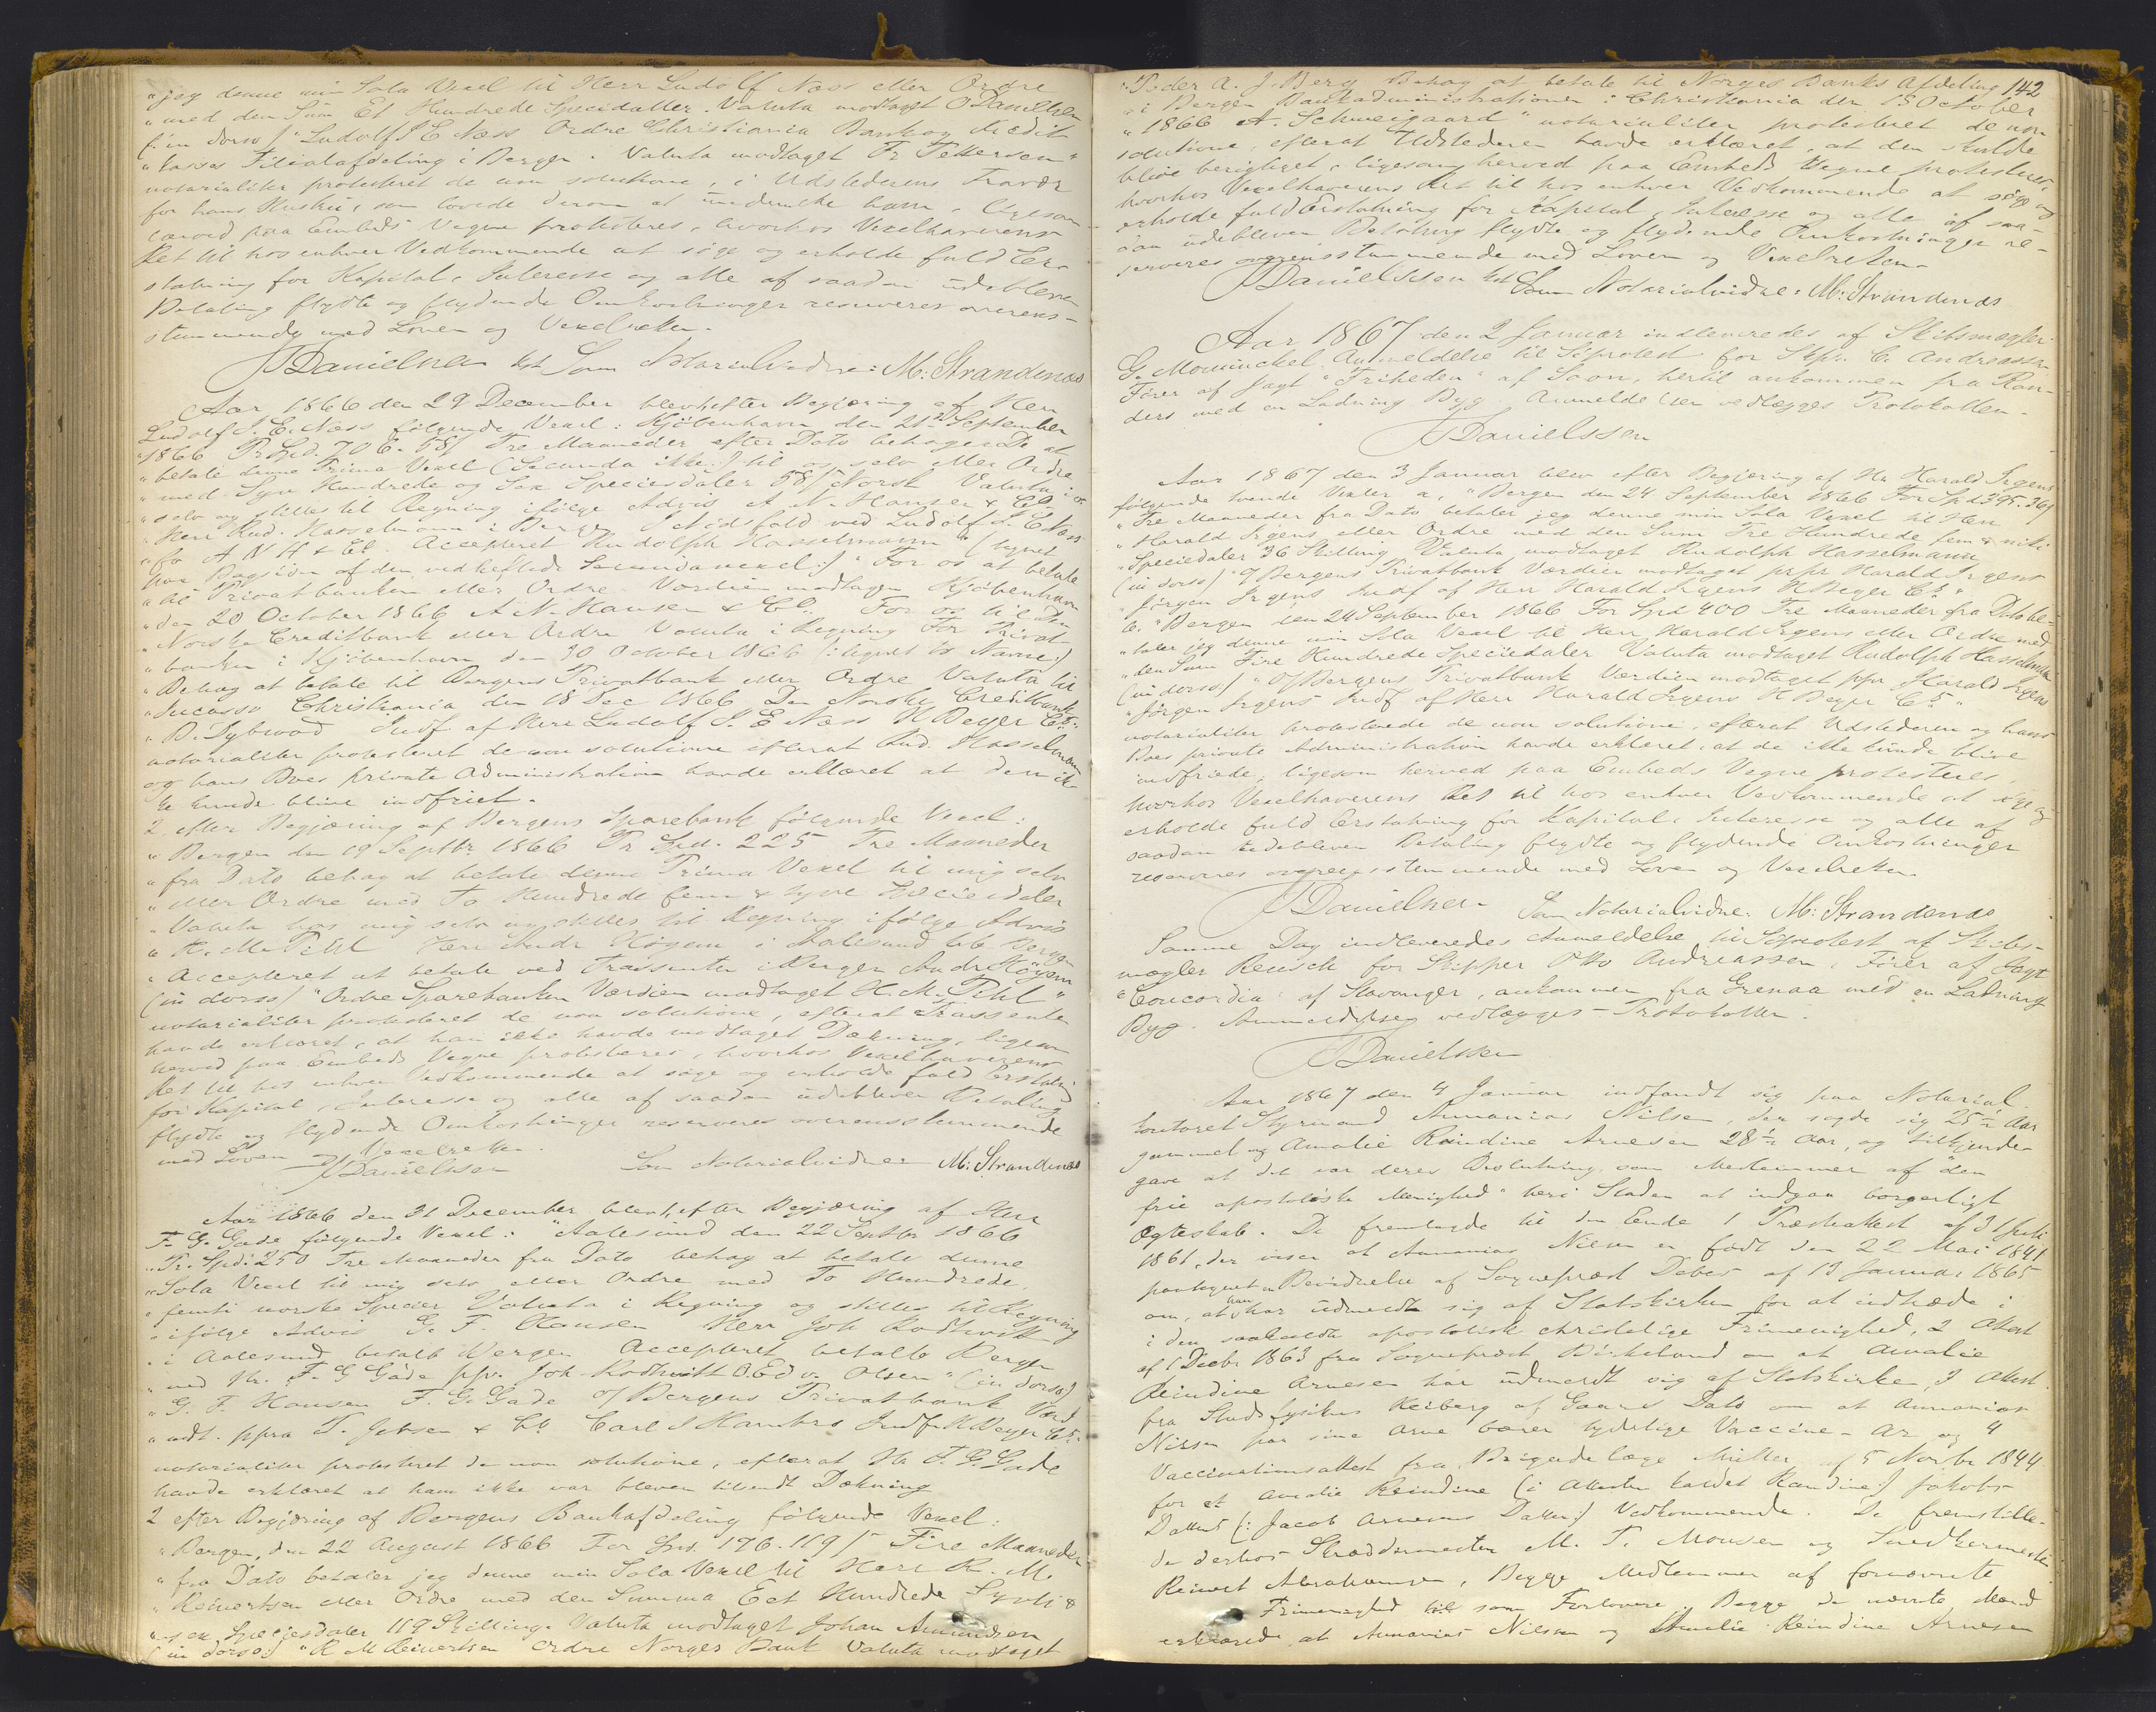 "jeg denne min Sola Vexel til Herr Ludolf Næss eller Ordre
"med den Sum Et Hundrede Speciedaler. Valuta modtaget O Danielsen
(: in dorso :) "Ludolf J E Næss Ordre Christiania Bank og Kredit
"kasses Filialafdeling i Bergen. Valuta modtaget Fr Pettersen"
notarialiter protesteret de non solutione, i Udstederens Fravær
for hans Hustru, som lovede derom at underrette ham, ligesom
herved paa Embeds Vegne protesteres, hvorhos Vexelhaverens
Ret til hos enhver Vedkommende at söge og erholde fuld Er-
statning for Kapital, Interesse og alle af saadan udebleven
Betaling flydte og flydende Omkostninger reserveres overens-
stemmende med Loven og Vexelretten.
J Danielssen kst Som Notarialvidne: M: Strandenæs
Aar 1866 den 29 December blev 1, efter Begjæring af Herr
Ludolf J. E. Næss følgende Vexel: "Kjöbenhavn den 21de September
"1866 Pr Spd. 706. 58 / Tre Maaneder efter Dato behager De at
"betale denne Prima Vexel (Secunda ikke) til os selv eller Ordre
"med Syv Hundrede og Sex Speciesdaler 58 / Norsk Valuta i os
"selv og stilles til Regning ifölge Advis A. N. Hansen & Co
"Herr Rud. Hasselmann i Bergen I Nödsfald ved Ludolf J. E Næss
"for A N H & Co. Accepteret Rudolph Hasselmann" (tegnet
paa Bagsiden af den vedheftede Secundavexel:) "For os at betale
"til Privatbanken eller Ordre Værdien modtagen Kjöbenhavn
"den 20 October 1866 A N. Hansen & Co. For os til Den
"Norske Creditbank eller Ordre Valuta i Regning For Privat
"banken i Kjöbenhavn den 30 October 1866 (: tegnet to Navne:)
"Behag at betale til Bergens Privatbank eller Ordre Valuta til
"Incasso Christiania den 18 Dec 1866 Den Norske Creditbank
" Indf af Herr Ludolf J. E Næss H Beyer Cs."
notarialiter protesteret de non solutione efterat Rud. Hasselmann
og hans Boes private Administration havde erklæret at den ik-
ke kunde blive indfriet.
2 efter Begjæring af Bergens Sparebank fölgende Vexel:
"Bergen den 19 Septbr. 1866 Pr Spd. 225 Tre Maaneder
"fra Dato behag at betale denne Prima Vexel til mig selv
"eller Ordre med To Hundrede fem & tyve Speciesdaler
"Valuta hos mig selv og stilles til Regning ifölge Advis
"H. M. Pihl Herr Andr Höyem i Aalesund btb Bergen
"Accepteret at betale ved Trassenten i Bergen Andr Höyem
(in dorso) "Ordre Sparebanken Værdien modtaget H. M. Pihl"
notarialiter protesteret de non solutione, efterat Trassenten
havde erklæret, at han ikke havde modtaget Dækning, ligesom
herved paa Embeds Vegne protesteres, hvorhos Vexelhaverens
Ret til hos enhver Vedkommende at söge og erholde fuld Erstatning
for Kapital, Interesse og alle af saadan udebleven Betaling
flydte og flydende Omkostninger reserveres overensstemmende
med Loven og Vexelretten.
J Danielssen Som Notarialvidne M: Strandenæs
Aar 1866 den 31 December blev 1, efter Begjæring af Herr
F. G. Gade fölgende Vexel: "Aalesund den 22 Septbr 1866
"Pr. Spd: 250 Tre Maaneder fra Dato behag at betale denne
"Sola Vexel til mig selv eller Ordre med To Hundrede
"femti norske Species Valuta i Regning og stilles til Regning
"ifölge Advis G. F. Hansen Herr Joh Rodtwitt
"i Aalesund betalb Bergen Accepteret betalb Bergen
"ved Hr. F. G Gade ppr. Joh Rodtwitt O. Edv. Olsen" (in dorso)
"G. F. Hansen F. G. Gade o/ Bergens Privatbank Værd
"mdt. ppra T. Jebsen & Co Carl J Hambro Indf. H Beyer Cs.
notarialiter protesteret de non solutione, efterat Hr F. G. Gade
havde erklæret at ham ikke var bleven tilsendt Dækning
2 efter Begjæring af Bergens Bankafdeling fölgende Vexel:
"Bergen, den 22 August 1866 For Spd. 176. 119 / Fire Maaneder
"fra Dato betaler jeg denne min Sola Vexel til Herr R. M.
"Reinertsen eller Ordre med den Summa Eet Hundrede Sytti &
"sex Speciesdaler 119 Skilling. Valuta modtaget Johan Amundsen
(in dorso:) "R M Reinertsen Ordre Norges Bank Valuta modtaget
142
"Peder A. J. Berg Behag at betale til Norges Banks Afdeling
"i Bergen Bankadministrationen i Christiania den 15 October
"1866 A. Schweigaard" notarialiter protesteret de non
solutione, efterat Udstederen havde erklæret, at den skulde
blive berigtiget, ligesom herved paa Embeds Vegne protesteres,
hvorhos Vexelhaverens Ret til hos enhver Vedkommende at söge og
erholde fuld Erstatning for Kapital, Interesse og alle af saa-
dan udebleven Betaling flydte og flydende Omkostninger re-
serveres overensstemmende med Loven og Vexelretten.
J Danielssen kst Som Notarialvidne: M: Strandenæs
Aar 1867 den 2 Januar indleveredes af Skibsmægler
G. Mowinckel Anmeldelse til Söprotest for Skpr. C. Andreassen
Förer af Jagt "Friheden" af Soon, hertil ankommen fra Ran-
ders med en Ladning Byg. Anmeldelsen vedlægges Protokollen.
J Danielssen
Aar 1867 den 3 Januar blev efter Begjæring af Hr Harald Irgens
fölgende tvende Vexler a, "Bergen den 24 September 1866 For Spd 395. 36 /
"Tre Maaneder fra Dato betaler jeg denne min Sola Vexel til Herr
"Harald Irgens eller Ordre med den Sum Tre Hundrede fem & niti
"Speciedaler 36 Skilling Valuta modtaget Rudolph Hasselmann
(in dorso) "o/ Bergens Privatbank Værdien modtaget pr pr Harald Irgens
"Jörgen Irgens Indf af Herr Harald Irgens H Beyer Cs."
b. "Bergen den 24 September 1866 For Spd 400 Tre Maaneder fra Dato be-
"taler jeg denne min Sola Vexel til Herr Harald Irgens eller Ordre med
"den Sum Fire Hundrede Speciedaler Valuta modtaget Rudolph Hasselmann
(in dorso) "o/ Bergens Privatbank Værdien modtaget ppr Harald Irgens
"Jörgen Irgens Indf af Herr Harald Irgens H Beyer Cs"
notarialiter protesterede de non solutione, efterat Udstederen og hans
Boes private Administration havde erklæret, at de ikke kunde blive
indfriede, ligesom herved paa Embeds Vegne protesteres
hvorhos Vexelhaverens Ret til hos enhver Vedkommende at söge og
erholde fuld Erstatning for Kapital, Interesse og alle af
saadan udebleven Betaling flydte og flydende Omkostninger
reserveres overensstemmende med Loven og Vexelretten
J Danielssen Som Notarialvidne: M: Strandenæs
Samme Dag indleveredes Anmeldelse til Söprotest af Skibs-
mægler Reusch for Skipper Andreassen, Förer af Jagt
"Concordia" af Stavanger, ankommen fra Grenaa med en Ladning
Byg. Anmeldelsen vedlægges Protokollen.
J Danielssen
Aar 1867 den 4 Januar indfandt sig paa Notarial-
kontoret Styrmand Annanias Nilsen, der sagde sig 25½ Aar
gammel og Amalie Reindine Arnesen 28½ Aar, og tilkjende-
gave at det var deres Beslutning som Medlemmer af "den
frie apostoliske Menighed" heri Staden at indgaa borgerligt
Ægteskab. De fremlagde til den Ende 1 Præsteattest af 31 Juli
1861, der viser at Annanias Nilsen er födt den 22 Mai 1841
paategnet Bevidnelse af Sognepræst Debes af 13 Januar 1865
om, at han har udmeldt sig af Statskirken for at indtræde i
i den saakaldte apostolisk christelige Frimenighed, 2 Attest
af 1 Decbr 1863 fra Sognepræst Birkeland om at Amalie
Reindine Arnesen har udmeldt sig af Statskirken, 3 Attest
fra Stadsfysikus Kiberg af Gaars Dato om at Annanias
Nilsen paa sine Arme bærer tydelige Vaccine-Ar og 4
Vaccinationsattest fra Brigadelæge Müller af 5 Novbr 1844
for et Amalie Reindine (i Attesten kaldet Randine:) Jakobs-
Datter (: Jacob Arnesens Datter:) Vedkommende. De fremstille-
de derhos Skræddermester M. T. Monsen og Snedkermester
Reinert Abrahamsen, Begge Medlemmer af fornævnte
Frimenighed til som Forlovere. Begge de nævnte Mænd
erklærede, at Annanias Nilsen og Amalie Reindine Arnesen